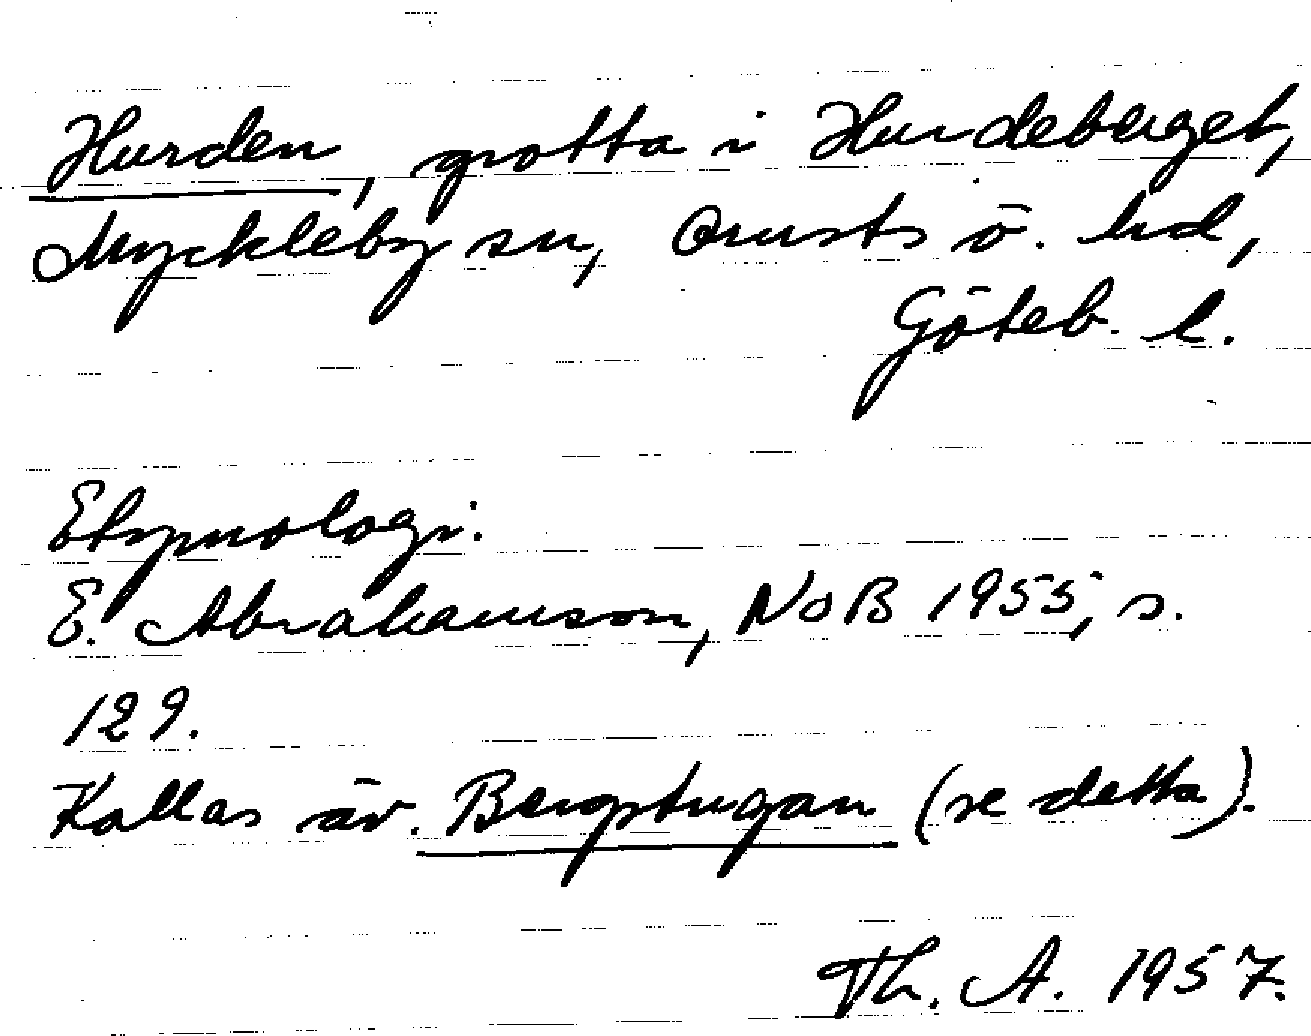 Hurden, grotta i Hurdeberget,
Myckleby sn, Orusts ö. hd,
Göteb. l.
Etymologi:
E. Abrahamson, NoB 1955, s.
129.
Kallas äv. Bergstugan (se detta).
Th. A. 1957.